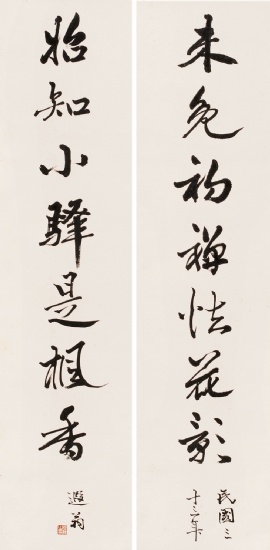 未免初禪怯花影
民國三
十三年
始知小驛是楓香
遐翁